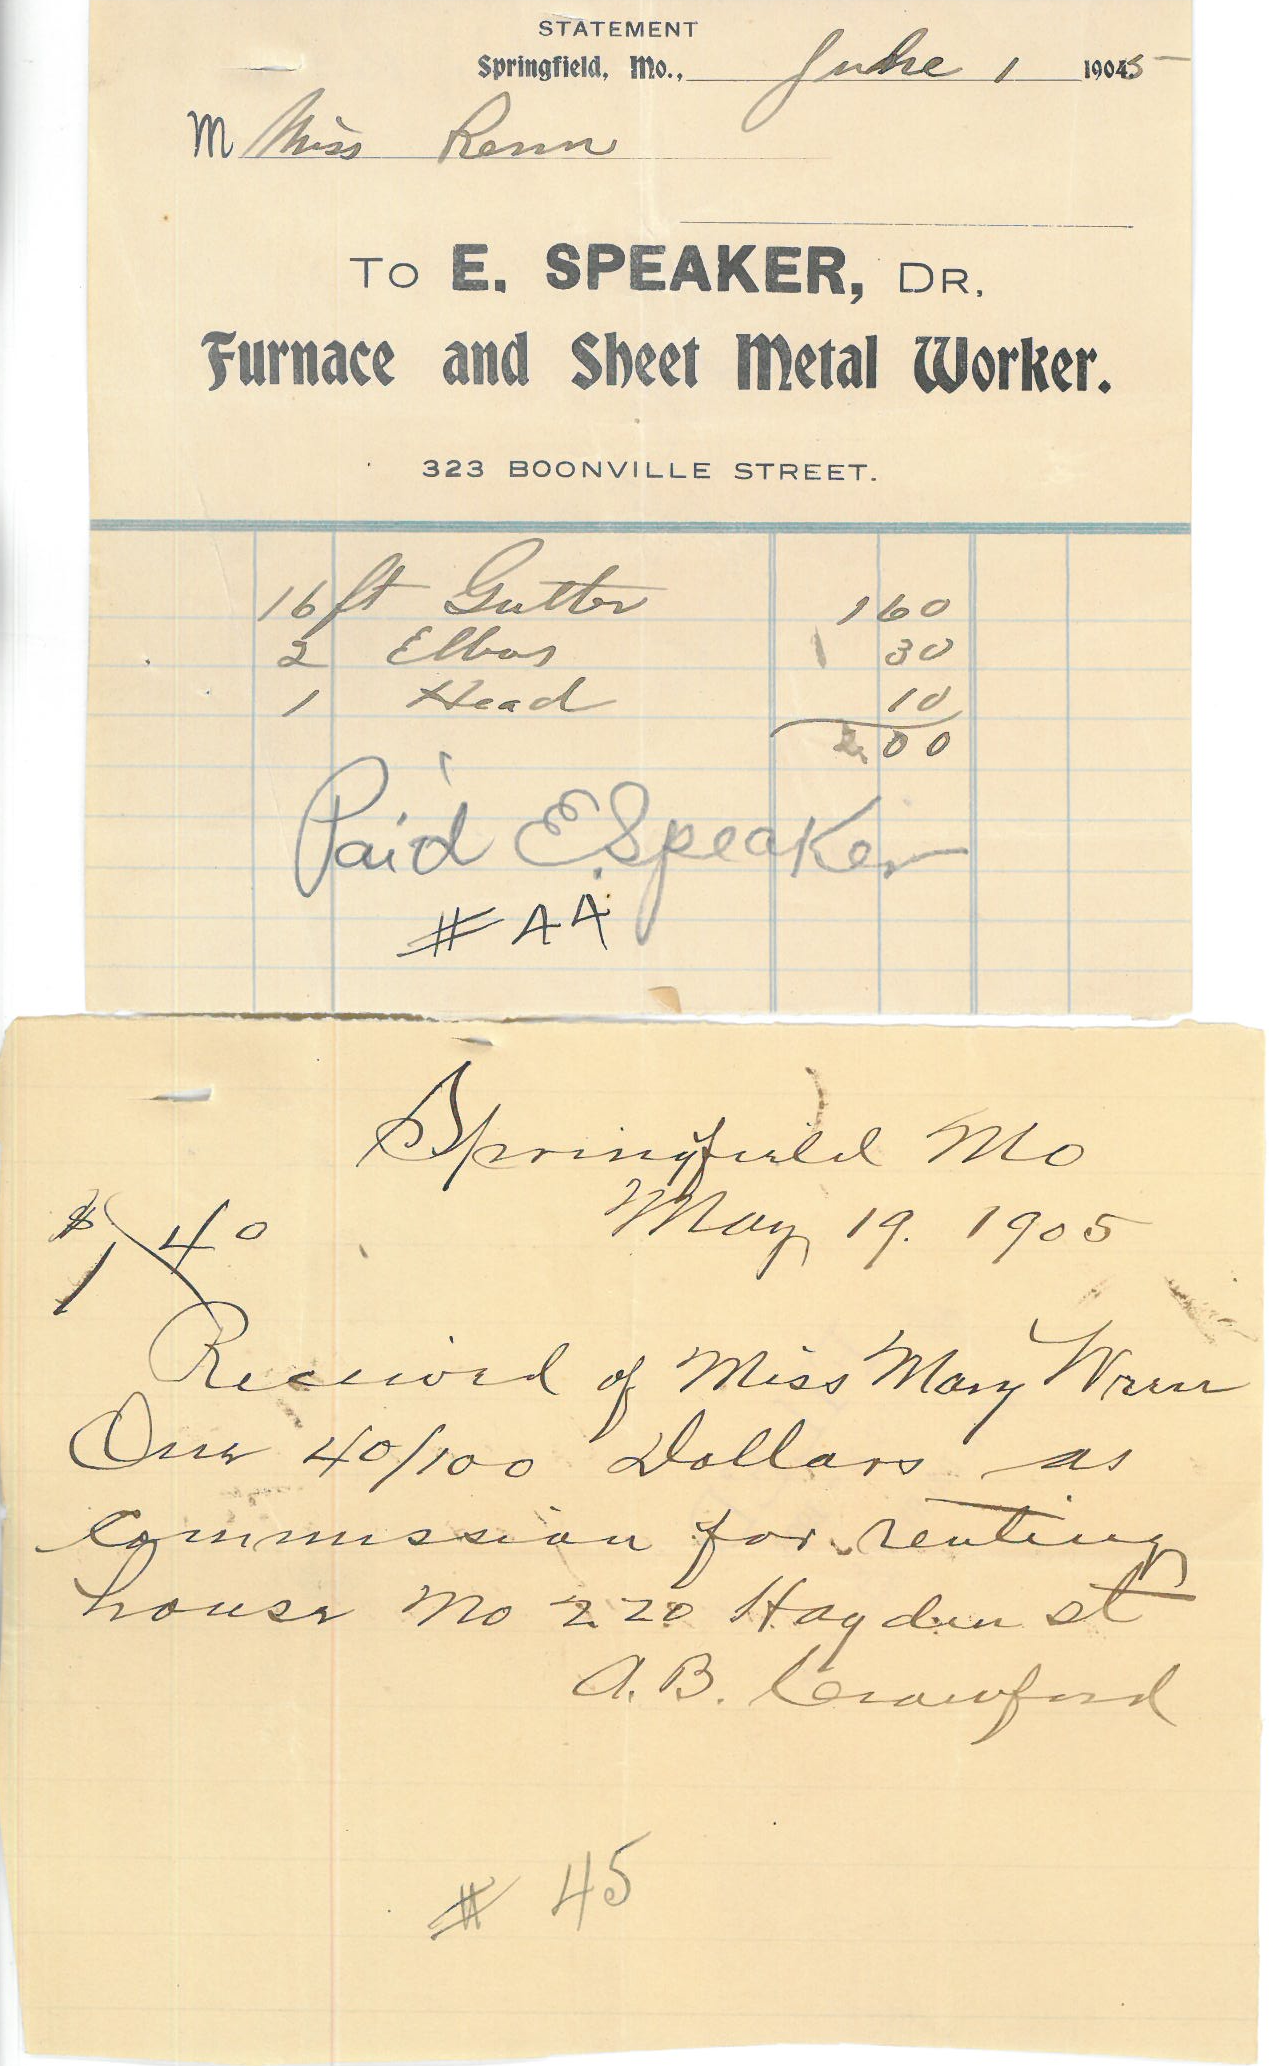 STATEMENT
Springfield, Mo., June 1 1905
M Miss Renn
TO E. SPEAKER, DR.
Furnace and Sheet Metal Worker.
323 BOONVILLE STREET.
16 ft Gutter 1 60
2 Elbos 30
1 Head 10
2 00
Paid E. Speaker
# 44
Springfield Mo
$1 40 May 19. 1905
Received of Miss Mary Wren
One 40/100 Dollars as
commission for renting
house No 220 Hayden st
A. B. Crawford
# 45